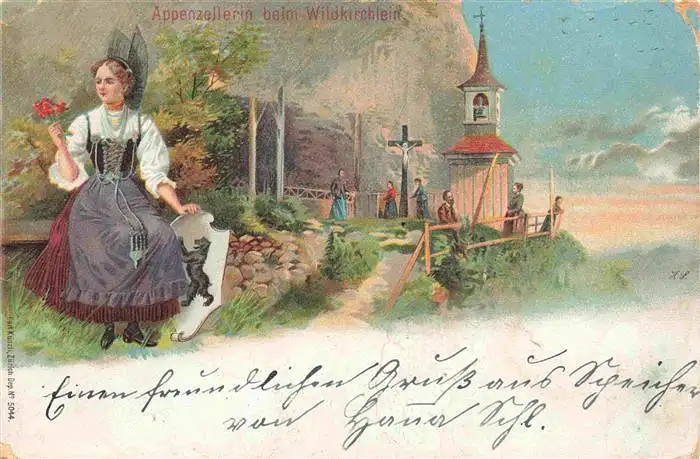 Appenzellerin beim Wildkirchlein
H.S.
Künzli, Zürich Dep. Nº 5044.
Einen freundlichen Gruß aus Speicher
von Hana Schl.